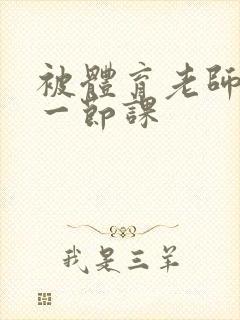 被體育老師
一節課
我是三羊